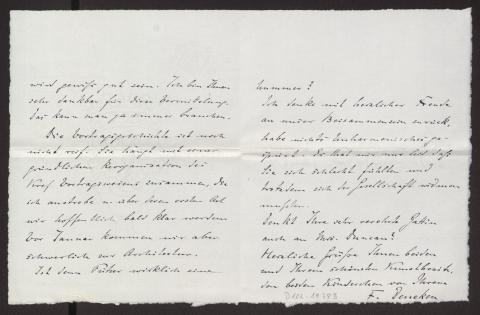 wird gewiß gut sein. Ich bin Ihnen
sehr dankbar für diese Vermittelung.
Das kann man ja immer brauchen.
Die Vortragsgeschichte ist noch
nicht reif. Sie hängt mit einer
gründlichen Reorganisation des
Vortragswesens zusammen, die
ich anstrebe u. über deren ersten Akt
wir hoffentlich bald klar werden.
Vor Januar kommen wir aber
schwerlich zur Architektur.
Ist denn Führer wirklich eine
Nummer?
Ich denke mit herzlicher Freude
an unser Beisammensein zurück,
habe nichts Unharmonisches ge-
spürt. Es hat mir nur leid daß
Sie sich schlecht fühlten und
trotzdem sich der Gesellschaft widmen
mußten.
Denkt Ihre sehr verehrte Gattin
auch an Miss Duncan?
Herzliche Grüße Ihnen beiden
und Ihrem schönsten Kunstbesitz,
den beiden Kinderchen von Ihrem
F. Deneken